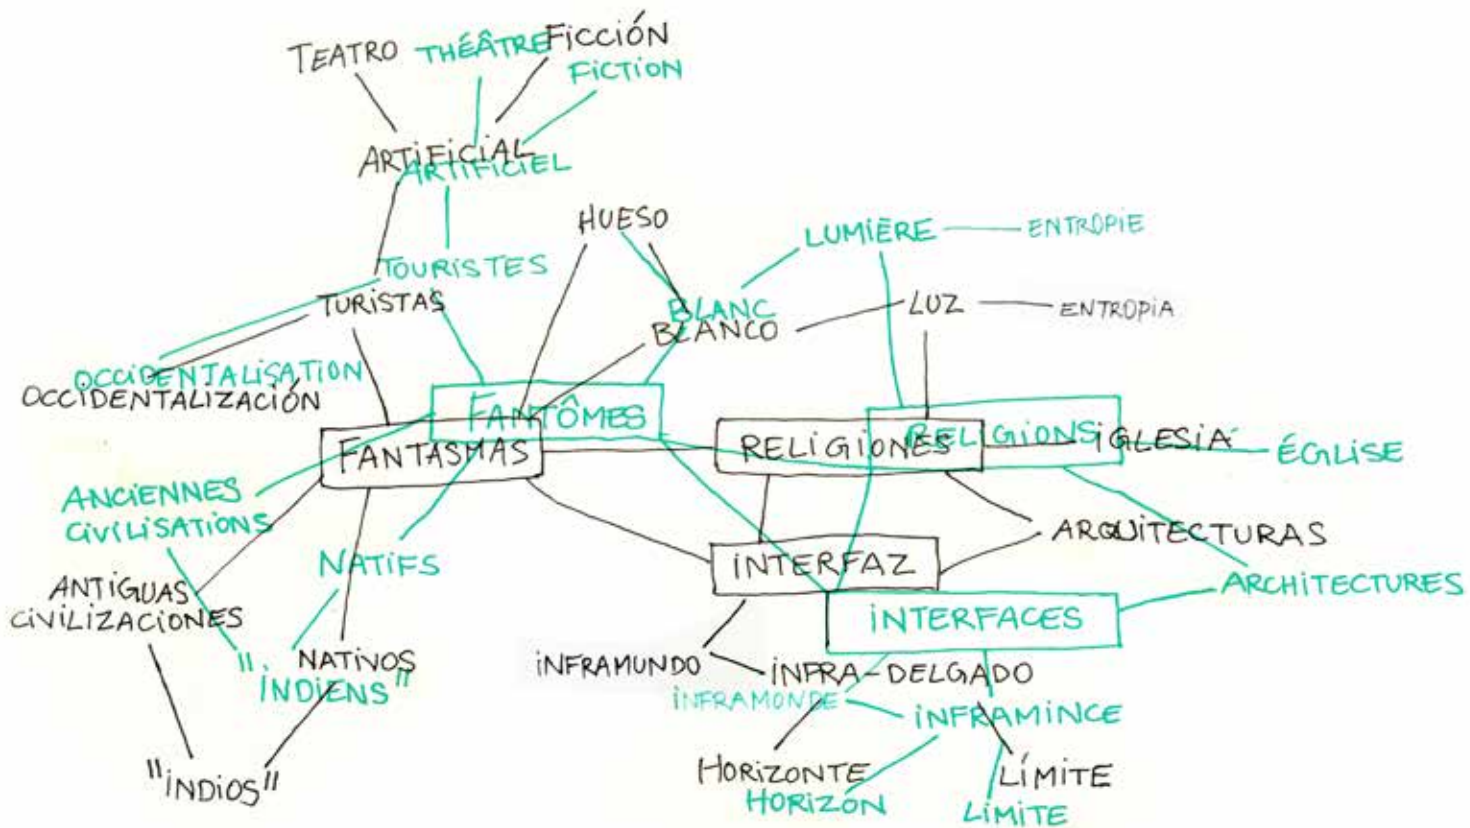 TEATRO
THÉÂTRE
FICCIÓN
FICTION
ARTIFICIAL
ARTIFICIEL
HUESO
LUMIÈRE
ENTROPIE
TOURISTES
TURISTAS
BLANC
BLANCO
LUZ
ENTROPIA
OCCIDENTALISATION
OCCIDENTALIZACIÓN
FANTÔMES
FANTASMAS
RELIGIONES
RELIGIONS
IGLESIA
ÉGLISE
ANCIENNES
CIVILISATIONS
NATIFS
INTERFAZ
ARQUITECTURAS
ARCHITECTURES
ANTIGUAS
CIVILIZACIONES
INTERFACES
NATIVOS
"INDIENS"
INFRAMUNDO
INFRA-DELGADO
INFRAMONDE
INFRAMINCE
"INDIOS"
HORIZONTE
HORIZON
LÍMITE
LIMITE